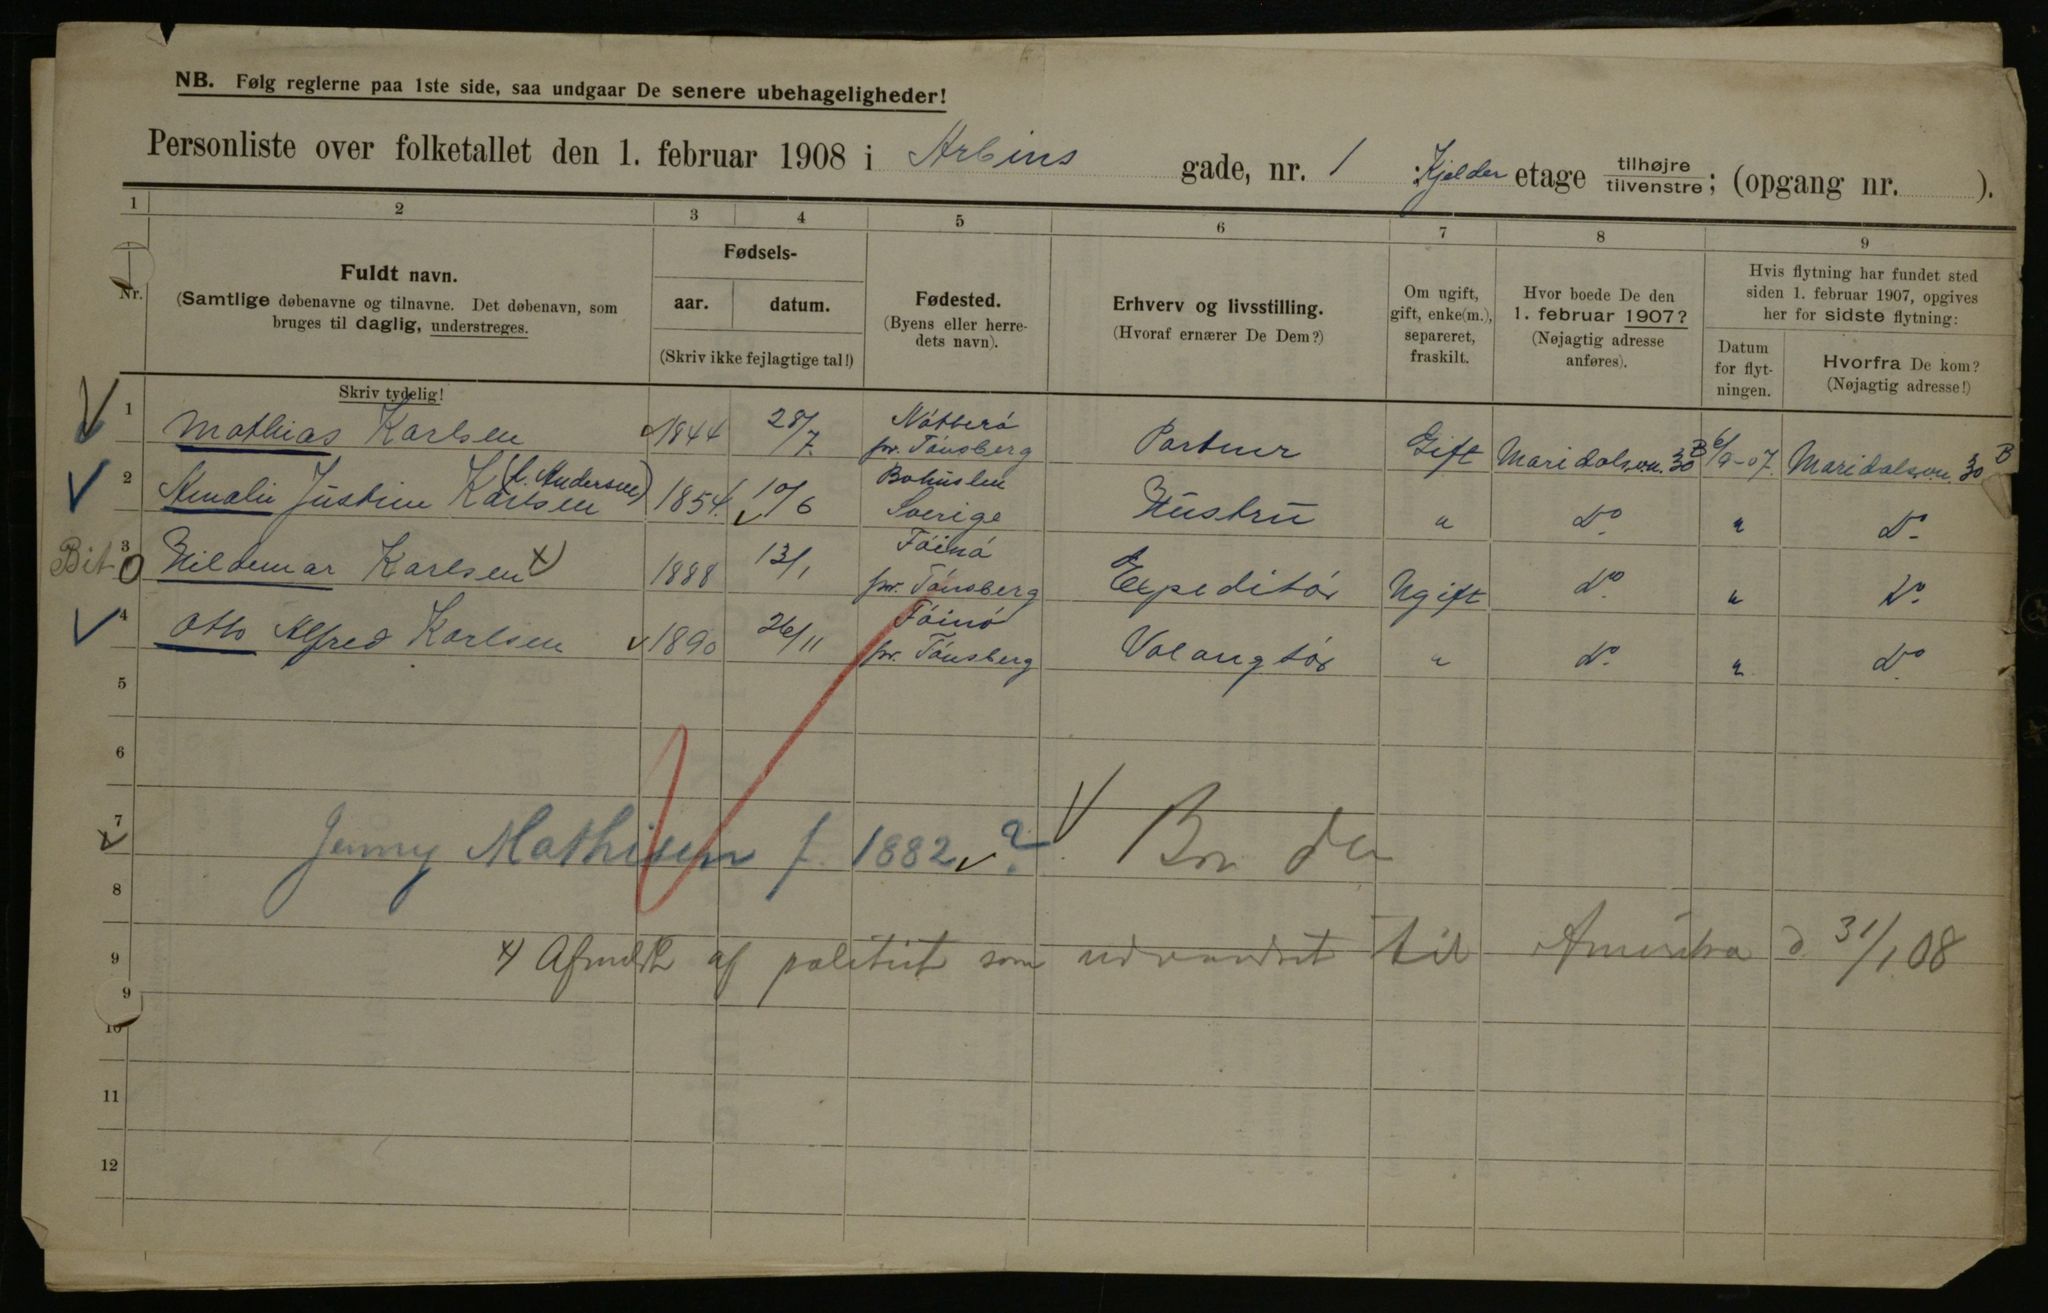 NB. Følg reglerne paa 1ste side, saa undgaar De senere ubehageligheder!
Personliste over folketallet den 1. februar 1908 i Arbins gade, nr. 1 Kjelder etage tilhøjre / tilvenstre; (opgang nr. ).
1 2 3 4 5 6 7 8 9
Nr.
Fuldt navn.
(Samtlige døbenavne og tilnavne. Det døbenavn, som
bruges til daglig, understreges.
Skriv tydelig!
Fødsels-
aar. datum.
(Skriv ikke fejlagtige tal!)
Fødested.
(Byens eller herre-
dets navn).
Erhverv og livsstilling.
(Hvoraf ernærer De Dem?)
Om ugift,
gift, enke(m.),
separeret,
fraskilt.
Hvor boede De den
1. februar 1907?
(Nøjagtig adresse
anføres).
Hvis flytning har fundet sted
siden 1. februar 1907, opgives
her for sidste flytning:
Datum
for flyt-
ningen.
Hvorfra De kom?
(Nøjagtig adresse!)
1 Mathias Karlsen 1844 28/7 Nötterö pr. Tönsberg Portner Gift Maridalsvn. 30 B 6/9-07. Maridalsvn. 30 B
2 Amalie Justine Karlsen (f. Andersen) 1854 10/6 Bohuslen Sverige Hustru " Do. " Do.
Bit 3 Hildemar Karlsen x) 1888 13/1 Föinö pr. Tönsberg Expeditör Ugift Do. " Do.
4 Otto Alfred Karlsen 1890 26/11 Föinö pr. Tönsberg Volangtör " Do. " Do.
5
6
7 Jenny Mathisen f. 1882 ? Bor der
8
9 x) Afmeldt af politiet som udvandret til Amerika d 31/1 08
9
10
11
12